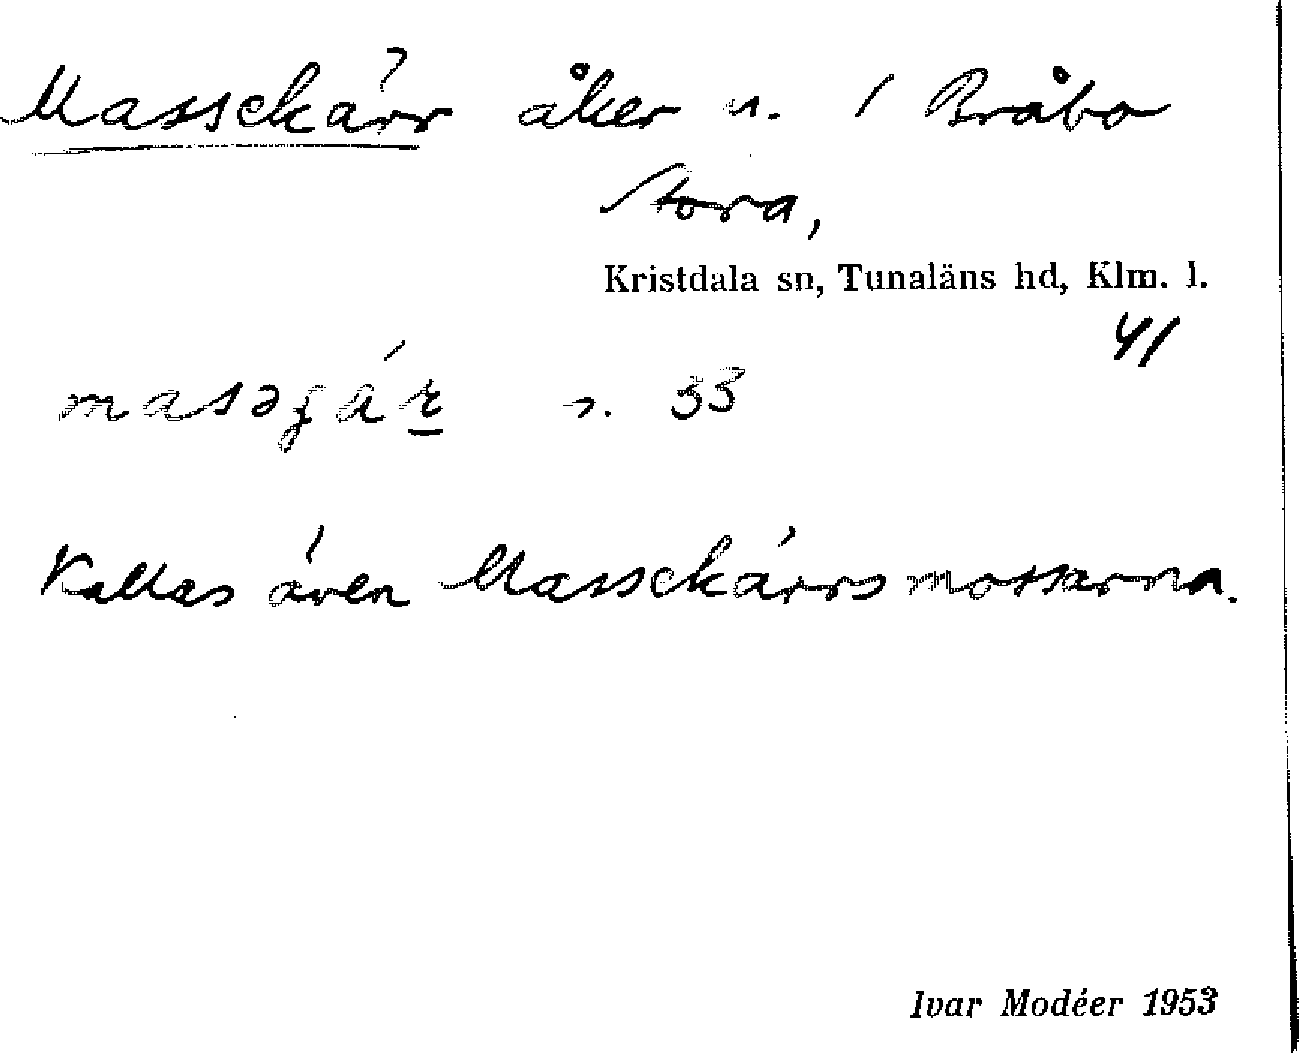 Massekärr åker n. 1 Bråbo
Stora,
Kristdala sn, Tunaläns hd, Klm. l.
41
33
Kallas även Massekärrsmossarna.
Ivar Modéer 1953